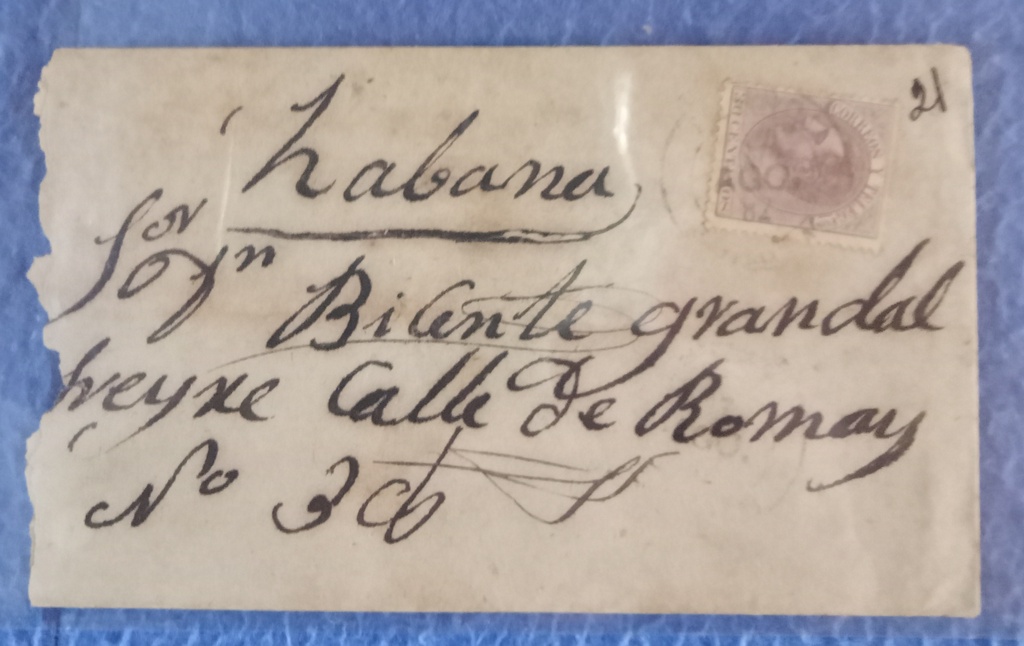 21
CORREOS Y TELEG
habana
Sor
Dn Bicente grandal
freyre Calle de Romay
No 36